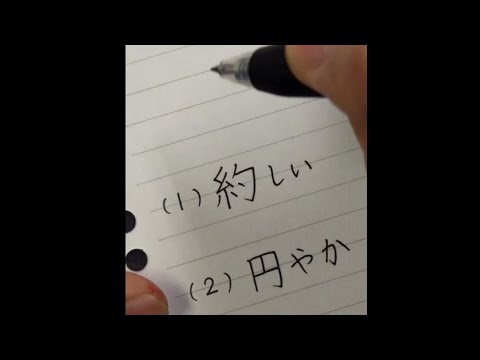 (1) 約しい
(2) 円やか